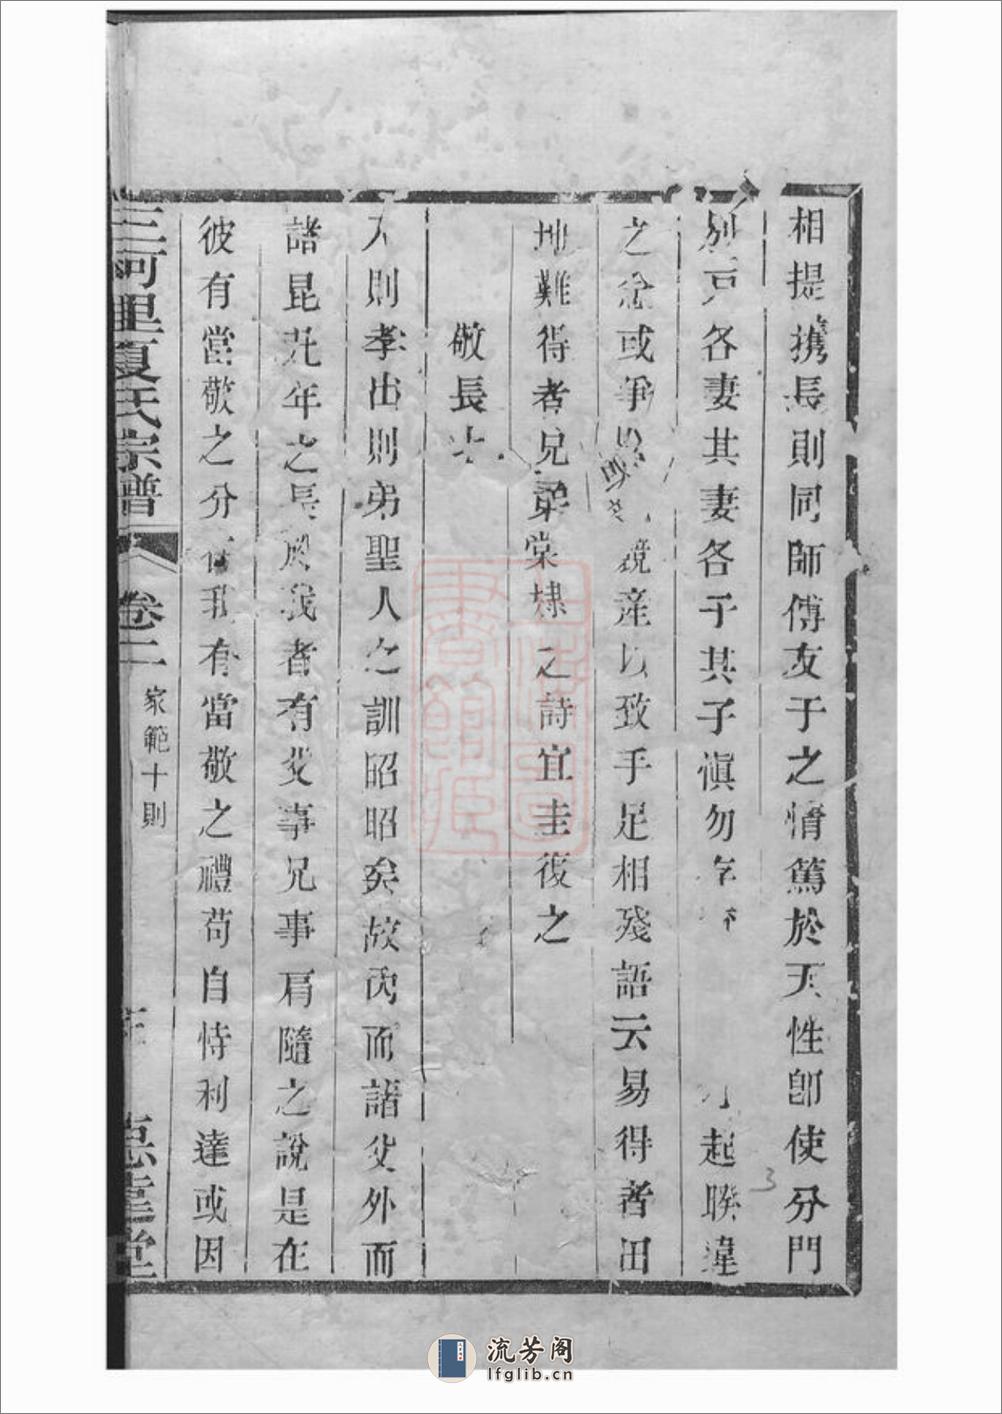 相提攜長則同師傅友于之情篤於天性卽使分門
別戸各妻其妻各子其子愼勿 起睽違
之忿或爭 競産以致手足相殘語云易得者田
地難得者兄弟棠棣之詩宜圭復之
敬長
入則孝出則弟聖人之訓昭昭矣故内而諸父外而
諸昆先年之長於我者有父事兄事肩隨之說是在
彼有當敬之分在我有當敬之禮苟自恃利達或因
三河里夏氏宗譜 卷二 家範十則 忠孝堂
流芳阁
lfglib.cn